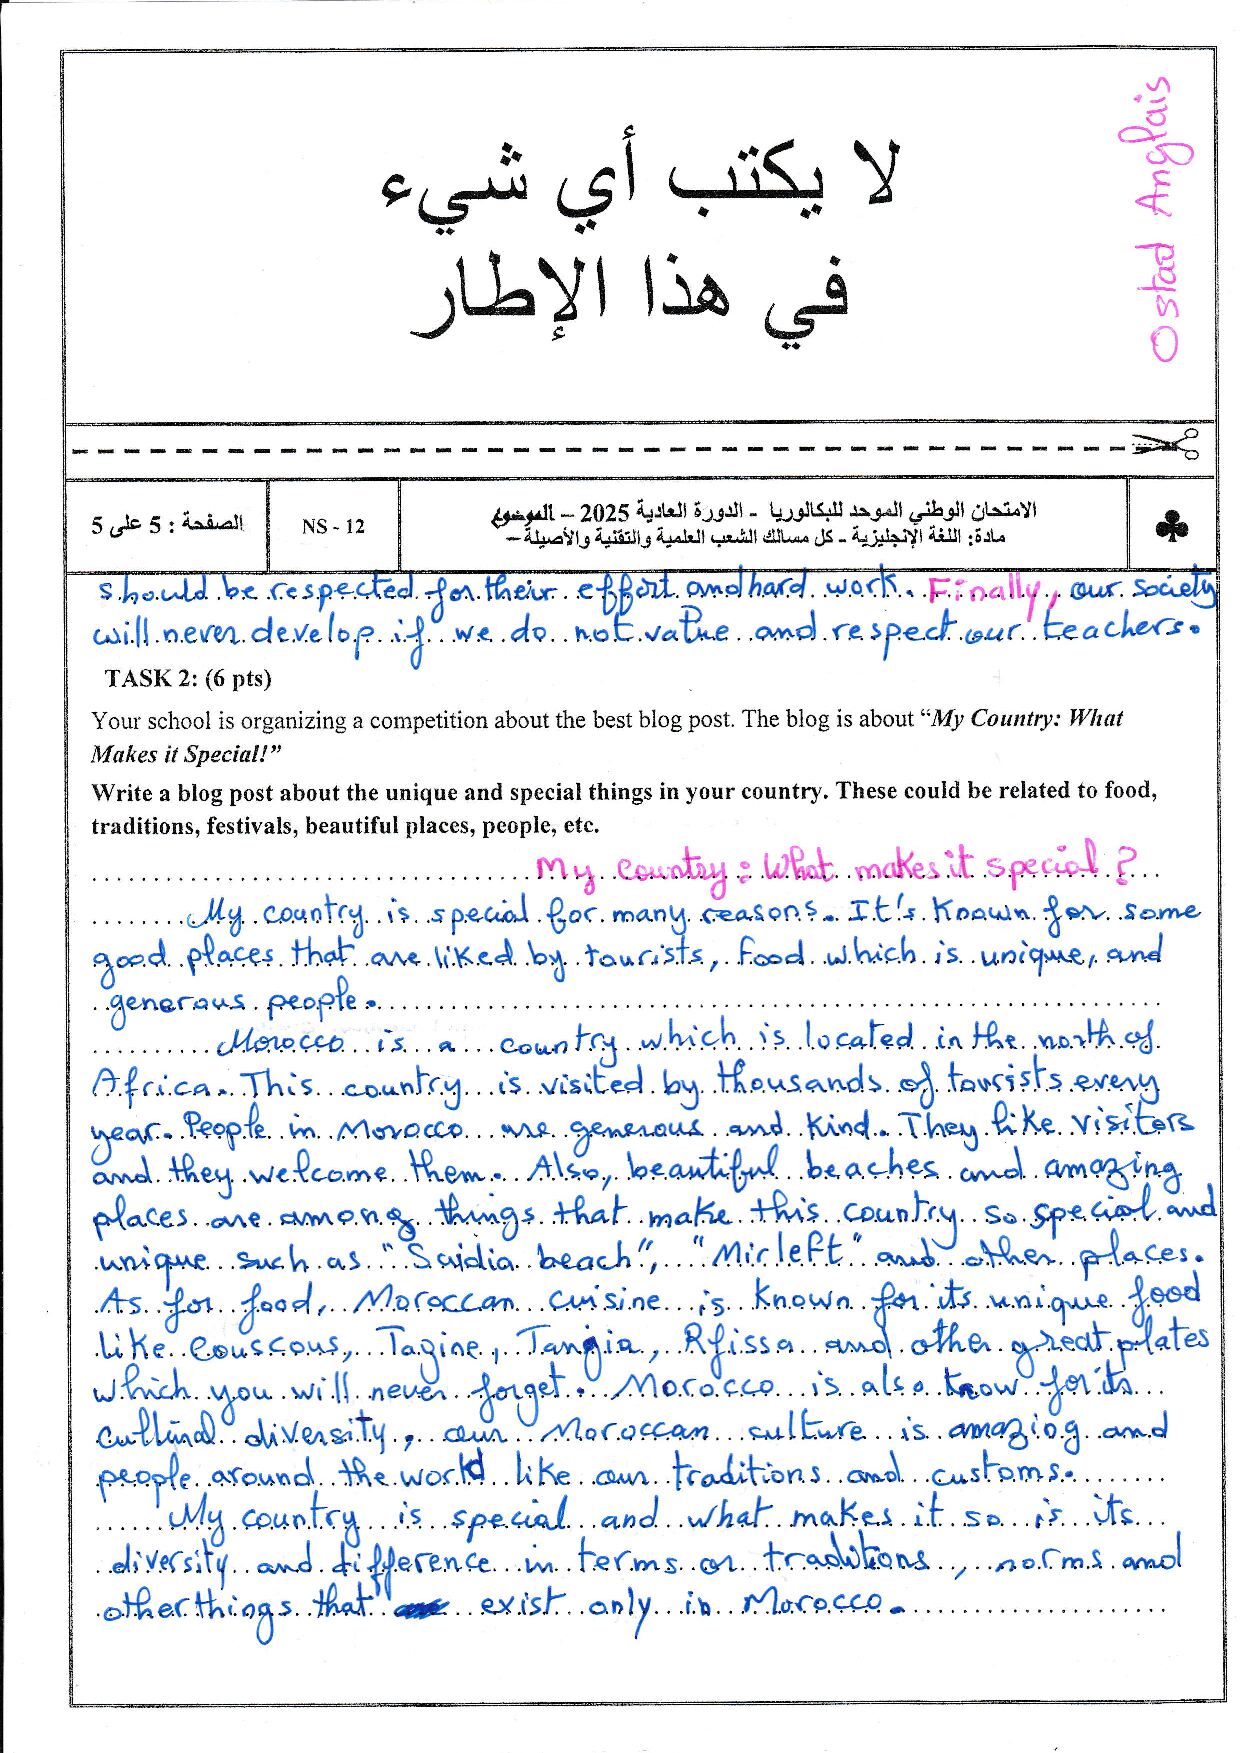 لا يكتب أي شيء
في هذا الإطار
Ostad Anglais
الصفحة : 5 على 5
NS - 12
الامتحان الوطني الموحد للبكالوريا - الدورة العادية 2025 – الموضوع
مادة: اللغة الإنجليزية - كل مسالك الشعب العلمية والتقنية والأصيلة –
should be respected for their effort and hard work. Finally, our society
will never develop if we do not value and respect our teachers.
TASK 2: (6 pts)
Your school is organizing a competition about the best blog post. The blog is about “My Country: What
Makes it Special!”
Write a blog post about the unique and special things in your country. These could be related to food,
traditions, festivals, beautiful places, people, etc.
My country: What makes it special?
My country is special for many reasons. It's known for some
good places that are liked by tourists, food which is unique, and
generous people.
Morocco is a country which is located in the north of
Africa. This country is visited by thousands of tourists every
year. People in Morocco are generous and kind. They like visitors
and they welcome them. Also, beautiful beaches and amazing
places are among things that make this country so special and
unique such as "Saidia beach", "Mirleft" and other places.
As for food, Moroccan cuisine is known for its unique food
like couscous, Tagine, Tangia, Rfissa and other great plates
which you will never forget. Morocco is also know for its
cultural diversity, our Moroccan culture is amazing and
people around the world like our traditions and customs.
My country is special and what makes it so is its
diversity and difference in terms or traditions, norms and
other things that exist only in Morocco.